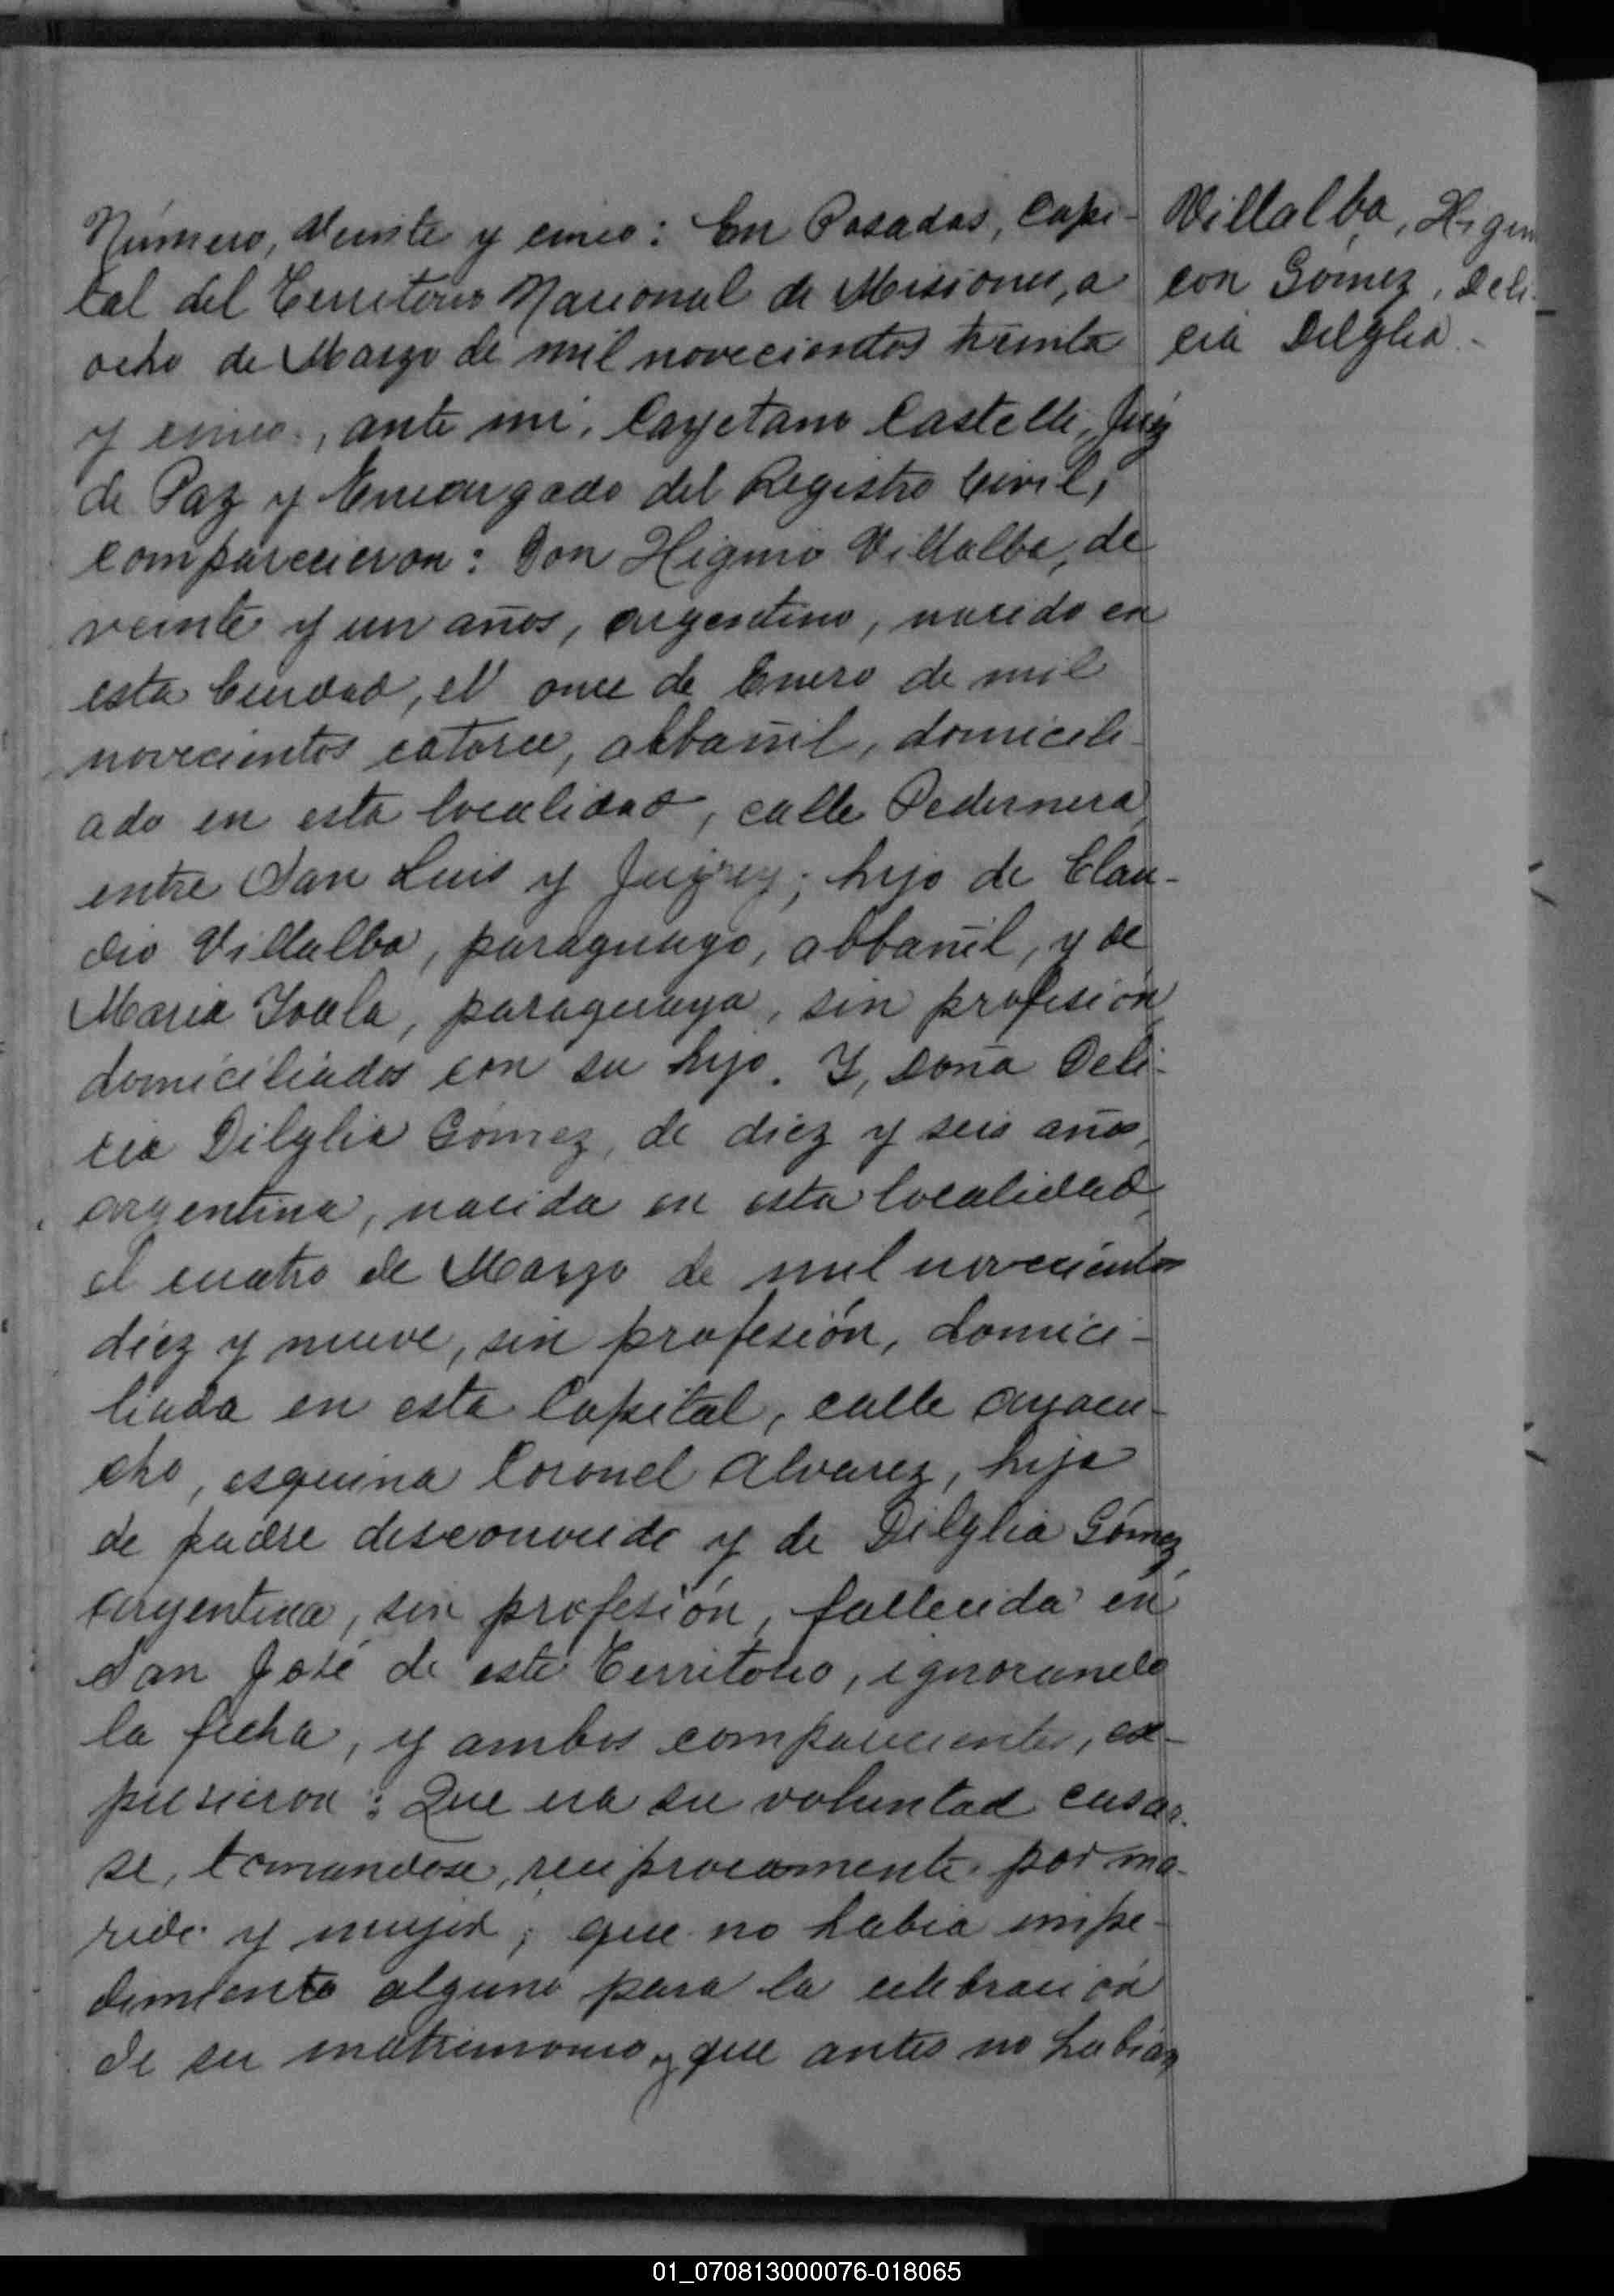 Número, Veinte y cinco: En Posadas, Capi-
tal del Territorio Nacional de Misiones, a
ocho de Marzo de mil novecientos treinta
y cinco, ante mi, Cayetano Castelli, Juez
de Paz y Encargado del Registro Civil,
comparecieron: Don Higinio Villalba, de
veinte y un años, argentino, nacido en
esta Ciudad, el once de Enero de mil
novecientos catorce, albañil, domicili-
ado en esta localidad, calle Pedernera,
entre San Luis y Jujuy; hijo de Clau-
dio Villalba, paraguayo, albañil, y de
Maria Ivala, paraguaya, sin profesión,
domiciliados con su hijo. Y, doña Deli-
cia Dilglia Gómez, de diez y seis años,
argentina, nacida en esta localidad,
el cuatro de Marzo de mil novecientos
diez y nueve, sin profesión, domici-
liada en esta Capital, calle Ayacu-
cho, esquina Coronel Alvarez, hija
de padre desconocido y de Dilglia Gómez,
argentina, sin profesión, fallecida en
San José de este Territorio, ignorando
la fecha, y ambos comparecientes, ex-
pusieron: Que era su voluntad casar-
se, tomandose, reciprocamente por ma-
rido y mujer; que no habia impe-
dimento alguno para la celebración
de su matrimonio y que antes no habian
Villalba, Higin
con Gómez, Deli-
cia Dilglia.-
01_070813000076-018065